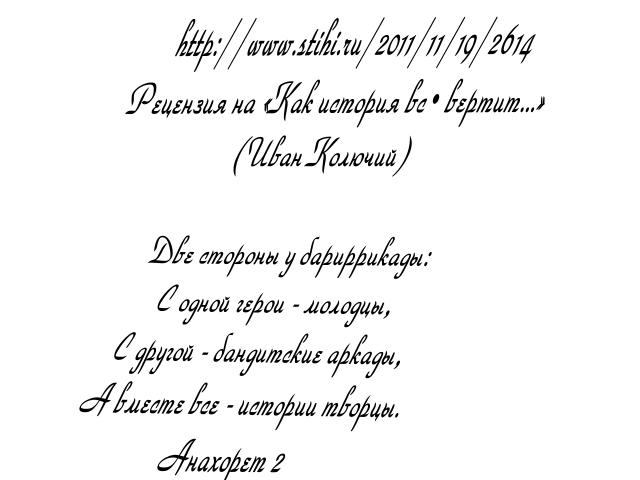 http://www.stihi.ru/2011/11/19/2614
Рецензия на «Как история вс•вертит...»
(Иван Колючий)
Две стороны у бариррикады:
С одной герои - молодцы,
С другой - бандитские аркады,
А вместе все - истории творцы.
Анахорет 2